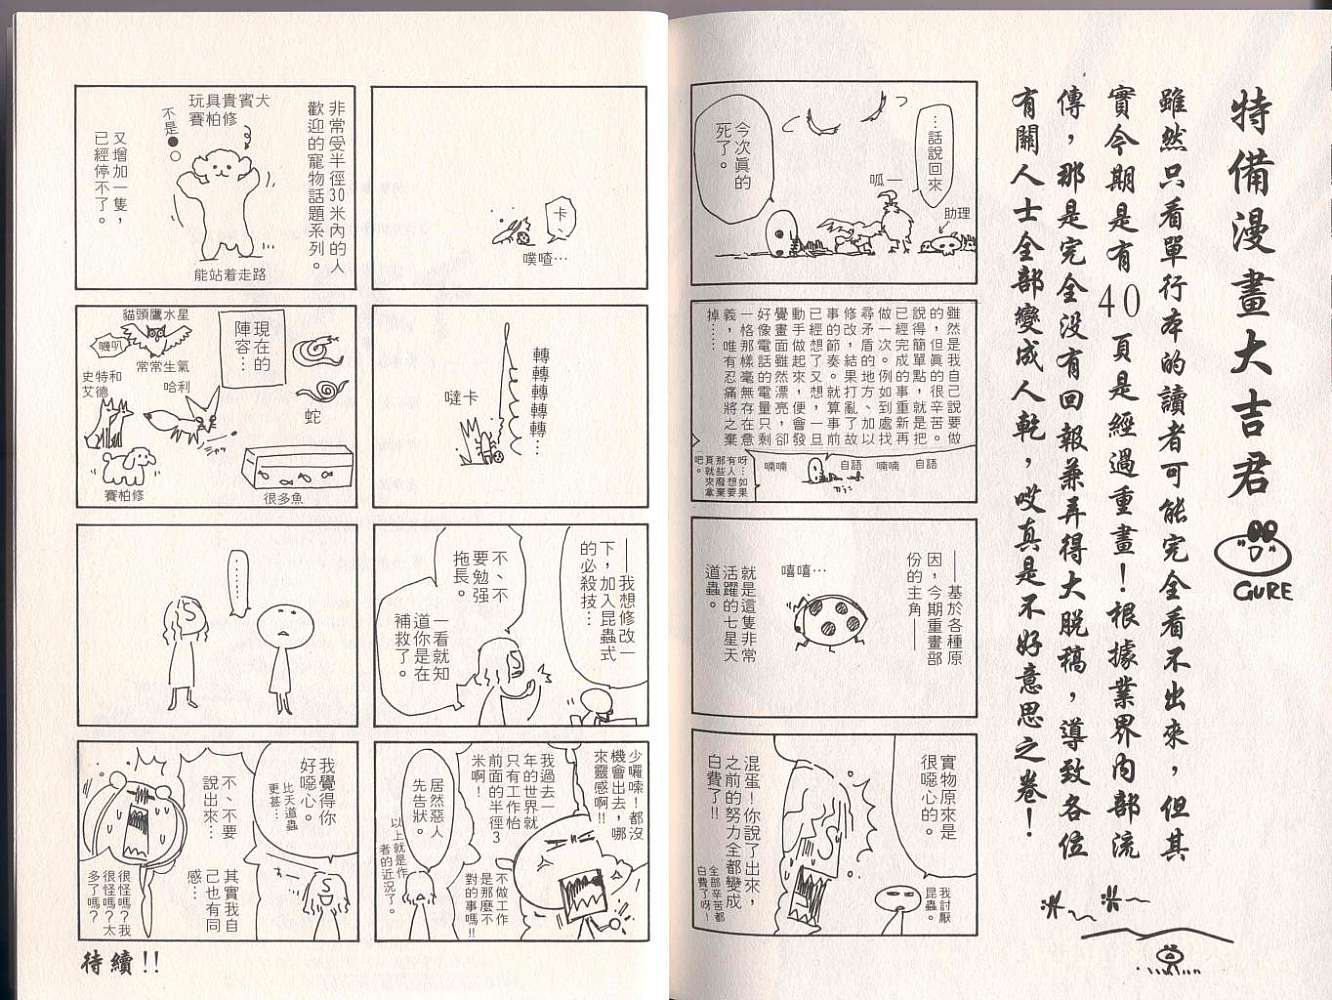 特備漫畫大吉君
GURE
雖然只看單行本的讀者可能完全看不出來，但其
實今期是有40頁是經過重畫！根據業界內部流
傳，那是完全沒有回報兼弄得大脫稿，導致各位
有關人士全部變成人乾，哎真是不好意思之卷！
…話說回來
助理
呱—
今次真的
死了。
雖然是我自己說要做
的，但真的很辛苦。
說得簡單點，就是把
已經完成的事重新再
做一次。例如到處找
尋矛盾的地方、加以
修改，結果打亂了故
事的節奏。就算事前
已經想了又想，一旦
動手做起來，便會發
覺畫面雖然漂亮，卻
好像電話的電量只剩
一格那樣毫無存在意
義，唯有忍痛將之棄
掉……
自語
喃喃
自語
喃喃
呀…如果
有人想要
那些廢棄
頁就來拿
吧。
——基於各種原
因，今期重畫部
份的主角——
嘻嘻…
就是這隻非常
活躍的七星天
道蟲。
實物原來是
很噁心的。
我討厭
昆蟲。
混蛋！你說了出來，
之前的努力全都變成
白費了!!
全部辛苦都
白費了呀！
卡、
噗喳…
轉轉轉轉轉…
噠卡
——我想修改一
下，加入昆蟲式
的必殺技…
不、不
要勉强
拖長。
一看就知
道你是在
補救了。
少囉嗦！都沒
機會出去，哪
來靈感啊!!
我過去一
年的世界就
只有工作怡
前面的半徑3
米啊！
不做工作
是那麼不
對的事嗎!!
居然惡人
先告狀。
以上就是作
者的近況了。
非常受半徑30米內的人
歡迎的寵物話題系列。
玩具貴賓犬
賽柏修
不是●○
能站着走路
又增加一隻，
已經停不了。
現在的
陣容…
蛇
很多魚
貓頭鷹水星
嘰叭
常常生氣
哈利
史特和
艾德
賽柏修
……
我覺得你
好噁心。
比天道蟲
更甚…
不、不要
說出來…
其實我自
己也有同
感…
很怪嗎？我
很怪嗎？太
多了嗎？
待續!!